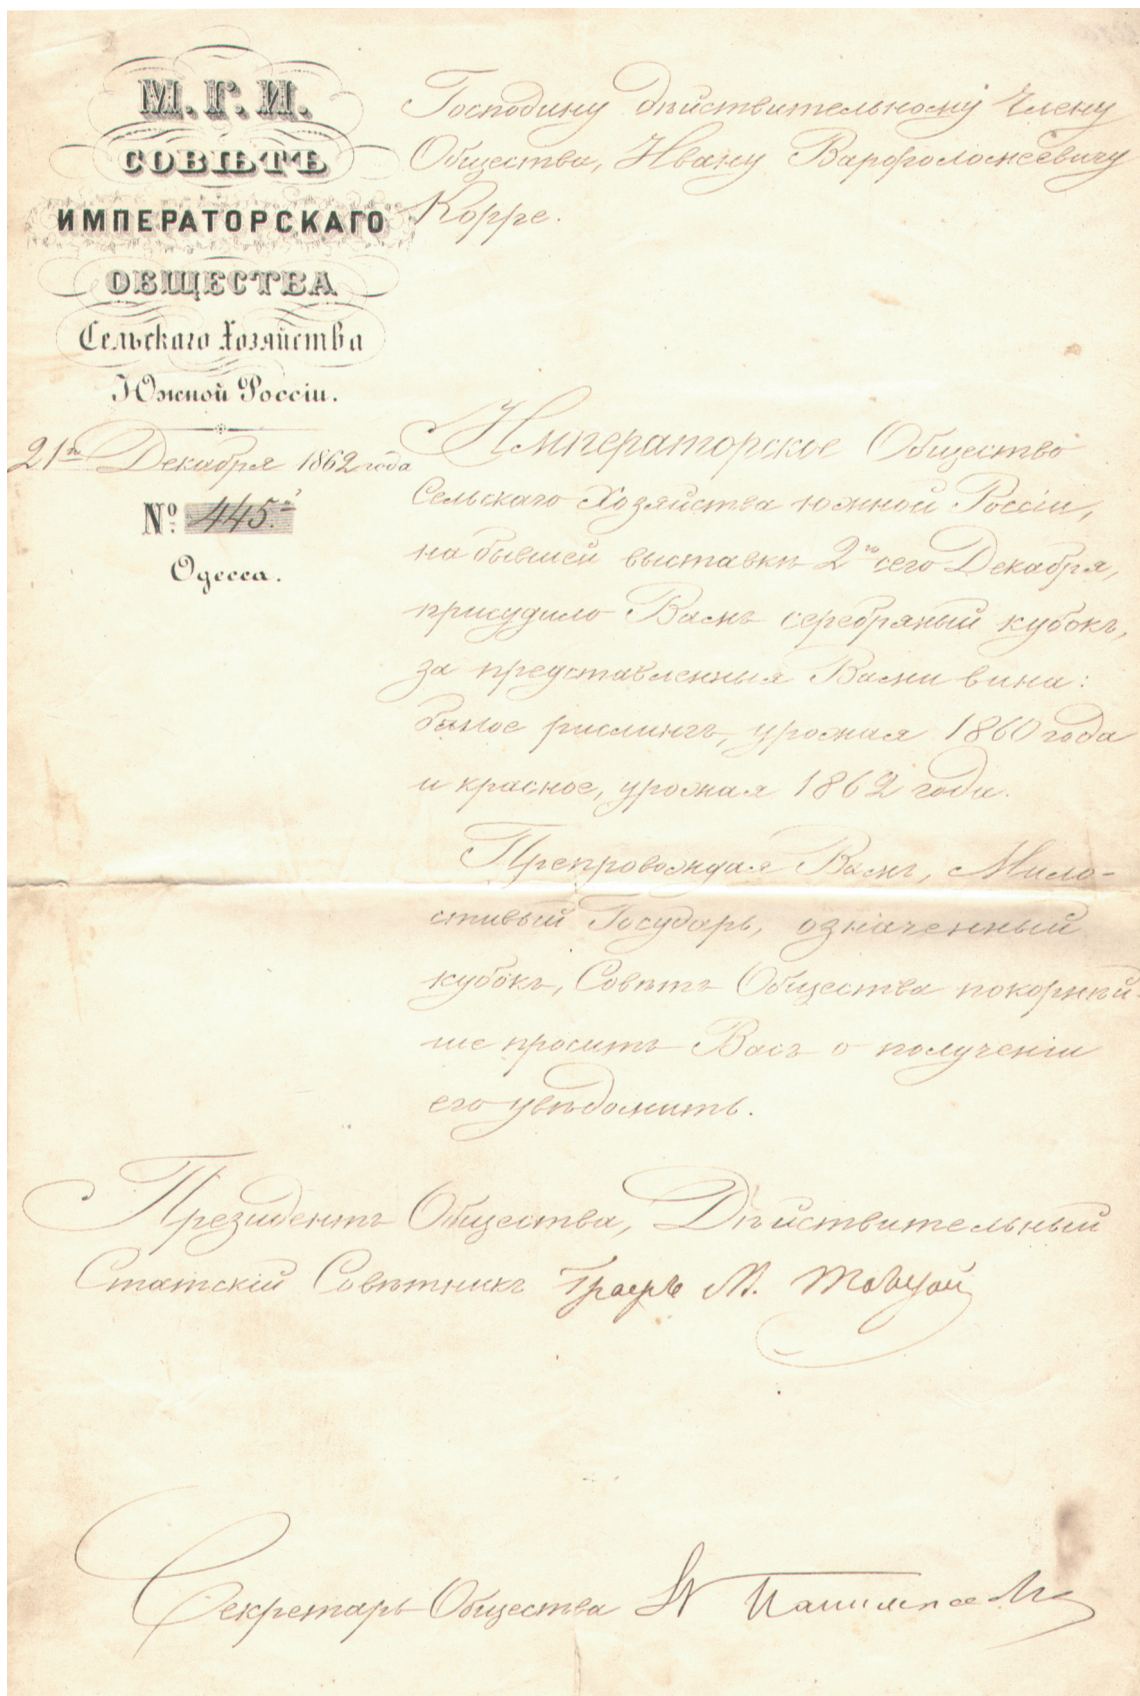 М. Г. И.
СОВѢТЪ
ИМПЕРАТОРСКАГО
ОБЩЕСТВА
Сельскаго Хозяйства
Южной Россіи.
21го Декабря 1862 года
№ 445.
Одесса.
Господину дѣйствительному Члену
Общества, Ивану Варфоломеевичу
Корре.
Императорское Общество
Сельскаго Хозяйства южной Россіи,
на бывшей выставкѣ 2го сего Декабря,
присудило Вамъ серебряный кубокъ,
за представленныя Вами вина:
бѣлое рислингъ, урожая 1860 года
и красное, урожая 1862 года.
Препровождая Вамъ, Мило-
стивый Государь, означенный
кубокъ, Совѣтъ Общества покорнѣй-
ше проситъ Васъ о полученіи
его увѣдомить.
Президентъ Общества, Дѣйствительный
Статскій Совѣтникъ Графъ М. Толстой
Секретарь Общества